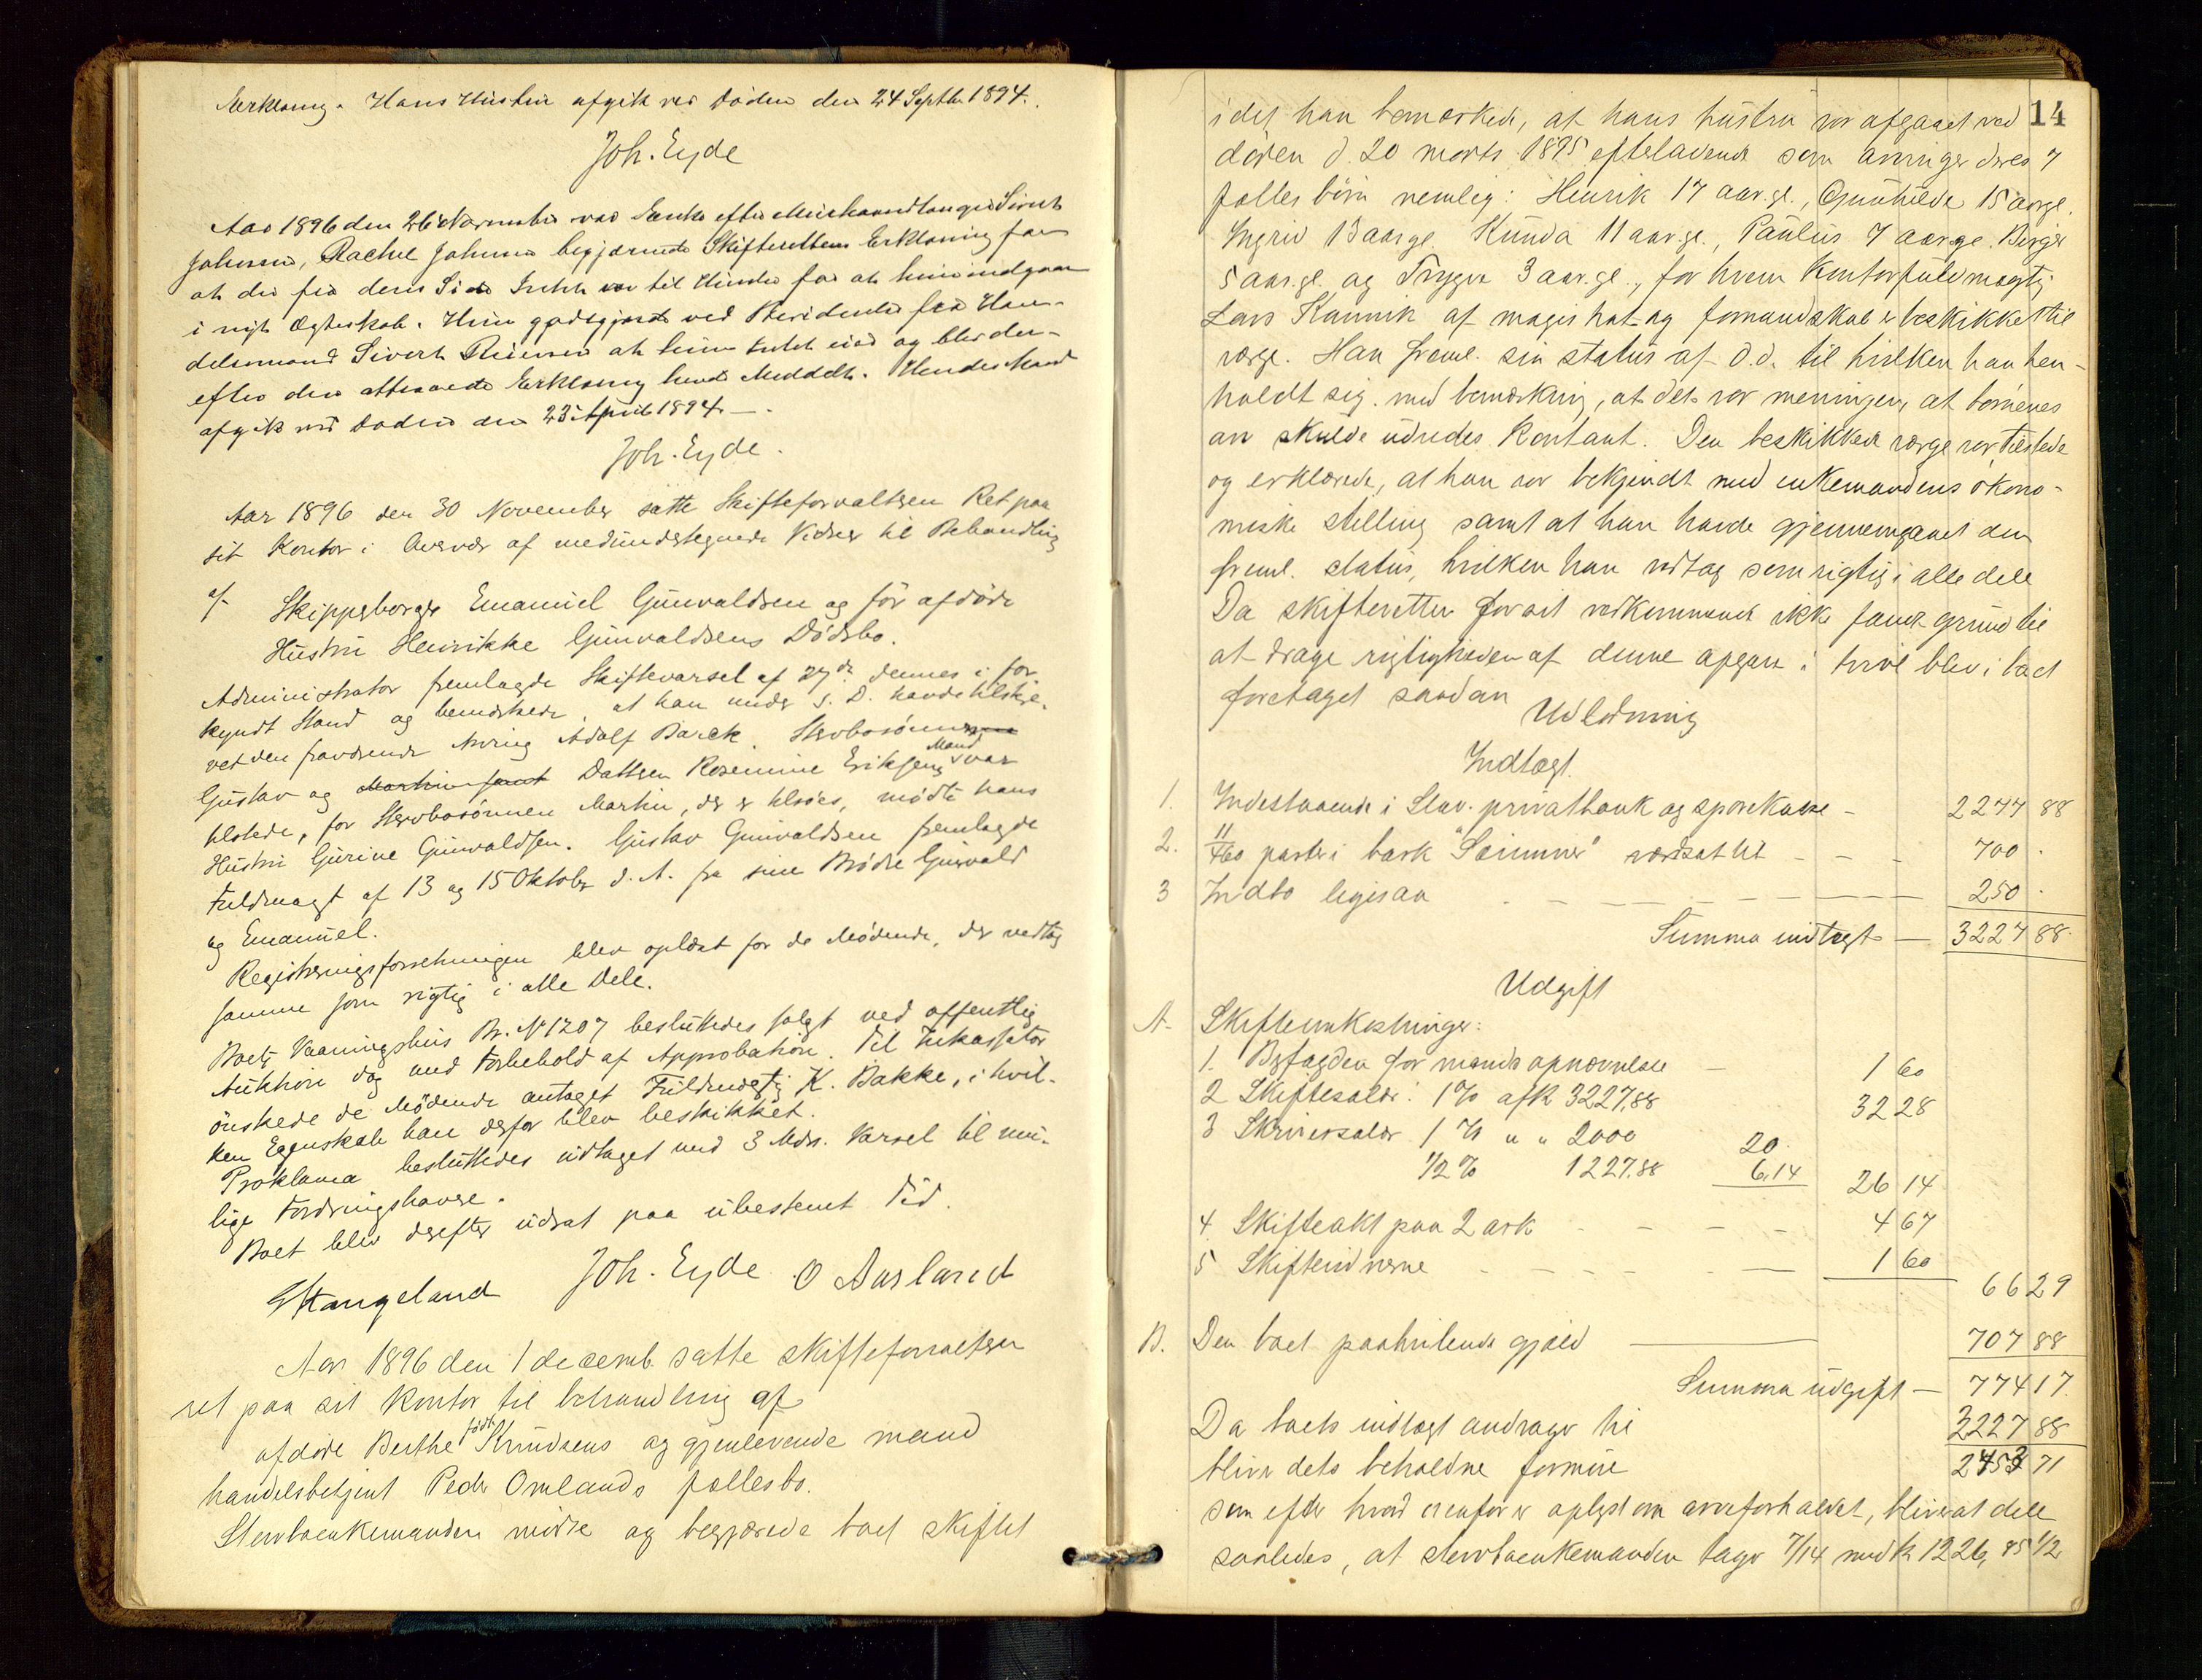 Erklæring. Hans Hustru afgik ved Døden den 24 Septbr 1894.
Joh. Eyde
Aar 1896 den 26 November var Enke efter Sivert
Johnsen, Rachel Johnsen begjærende Skifterettens Erklæring for
at der fra dens Side Intet var til Hinder for at hun indgaar
i nyt Ægteskab. Hun godtgjorde ved Beviidnelse fra Han-
delsmand Sivert at hun Intet eied og blev der-
efter den attraaede Erklæring hende Meddelt. Hendes Mand
afgik ved Døden den 23 April 1894. —
Joh. Eyde.
Aar 1896 den 30 November satte Skifteforvalteren Ret paa
sit Kontor i Overvær af medundertegnede Vidner til Behandling
af
Skippsborger Emanuel Gunvaldsen og før afdøde
Hustru Henrikke Gunvaldsens Dødsbo.
Administrator fremlagde Skiftevarsel af 27de dennes i for-
kyndt Stand og bemærkede, at han under s. D. havde tilskre-
vet den fraværende Arving Adolf Barck. Stervbosønnerne
Gustav og Martin samt Datteren Rosemine Eriksens Mand var
tilstede, for Stervbosønnen Martin, der er tilsøes, mødte hans
Hustru Gurine Gunvaldsen. Gustav Gunvaldsen fremlagde
Fuldmagt af 13 og 15 Oktober d. A. fra sine Brødre Gunvald
og Emanuel.
Registreringsforretningen blev oplæst for de Mødende, der vedtog
samme som rigtig i alle Dele.
Boets Vaaningshus Br. No 1207 besluttedes solgt ved offentlig
Auktion dog med Forbehold af Approbation. Til Inkassator
ønskede de Mødende antaget Fuldmægtig K. Bakke, i hvil-
ken Egenskab han derfor blev beskikket.
Proklama besluttedes udtaget med 3 Mdrs. Varsel til mu-
lige Fordringshavere.
Boet blev derefter udsat paa ubestemt Tid.
Stangeland Joh. Eyde O Aasland
Aar 1896 den 1 decemb. satte skifteforvalteren
ret paa sit kontor til behandling af
afdøde Berthe født Knudsens og gjenlevende mand
handelsbetjent Peder Omlands fællesbo.
Stervboenkemanden mødte og begjærede boet skiftet
14
idet han bemærkede, at hans hustru var afgaaet ved
døden d. 20 marts 1895 efterladende som arvinger deres 7
fælles børn nemlig: Henrik 17 aar.gl., Gunhilde 15 aar.gl.
Ingrid 13 aar.gl. Kunda 11 aar.gl., Paulus 7 aar.gl. Birger
5 aar.gl. og Trygve 3 aar.gl., for hvem Kontorfuldmægtig
Lars Kannik af magistrat og formandskab er beskikket til
værge. Han freml. sin status af d.d. til hvilken han hen-
holdt sig med bemærkning, at det var meningen, at børnenes
arv skulde udredes kontant. Den beskikkede værge var tilstede
og erklærede, at han var bekjendt med enkemandens økono-
miske stilling samt at han havde gjennemgaaet den
freml. status, hvilken han vedtog som rigtig i alle dele
Da skifteretten for sit vedkommende ikke fandt grund til
at drage rigtigheden af denne opgave i tvivl blev i boet
foretaget saadan
Udlodning
Indtægt.
1. Indestaaende i Stav. privatbank og sparekasse – 2277 88
2. 11/460 parter i bark "Særimner" værdsat til – – – 700 .
3 Indbo ligesaa – – – 250 .
Summa indtægt — 3227 88
Udgift
A. Skifteomkostninger:
1. Byfogden for mands opnævnelse – 1 60
2 Skiftesalær: 1% af k 3227,88 32 28
3 Skriversalær 1 % " " 2000 20.
1/2 % 1227,88 6,14 26 14
4. Skifteakt paa 2 ark – – – – 4 67
5 Skiftevidnerne – – – – 1 60
66 29
B. Den boet paahvilende gjæld — 707 88
Summa udgift — 774 17.
Da boets indtægt andrager til 3227 88
bliver dets beholdne formue 2453 71
som efter hvad ovenfor er oplyst om arveforholdet, bliver at dele
saaledes, at stervboenkemanden tager 7/14 med k 1226, 85 1/2